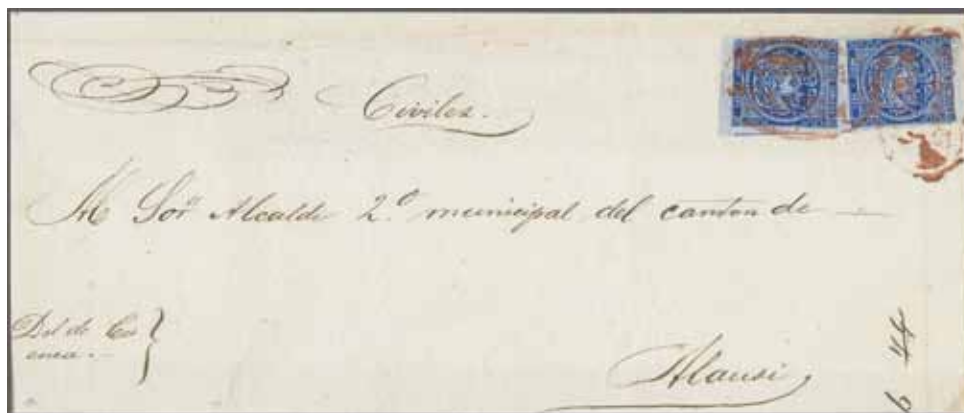 Civiles.
Al Sor. Alcalde 2.º municipal del canton de —
Del de Cu
enca.
Alausí,